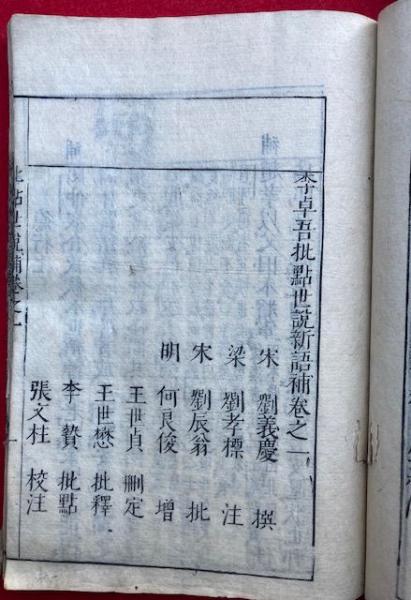 李卓吾批點世說新語補卷之一
宋 劉義慶 撰
梁 劉孝標 注
宋 劉辰翁 批
明 何良俊 增
王世貞 刪定
王世懋 批釋
李贄 批點
張文柱 校注
批點世說補卷之一
一